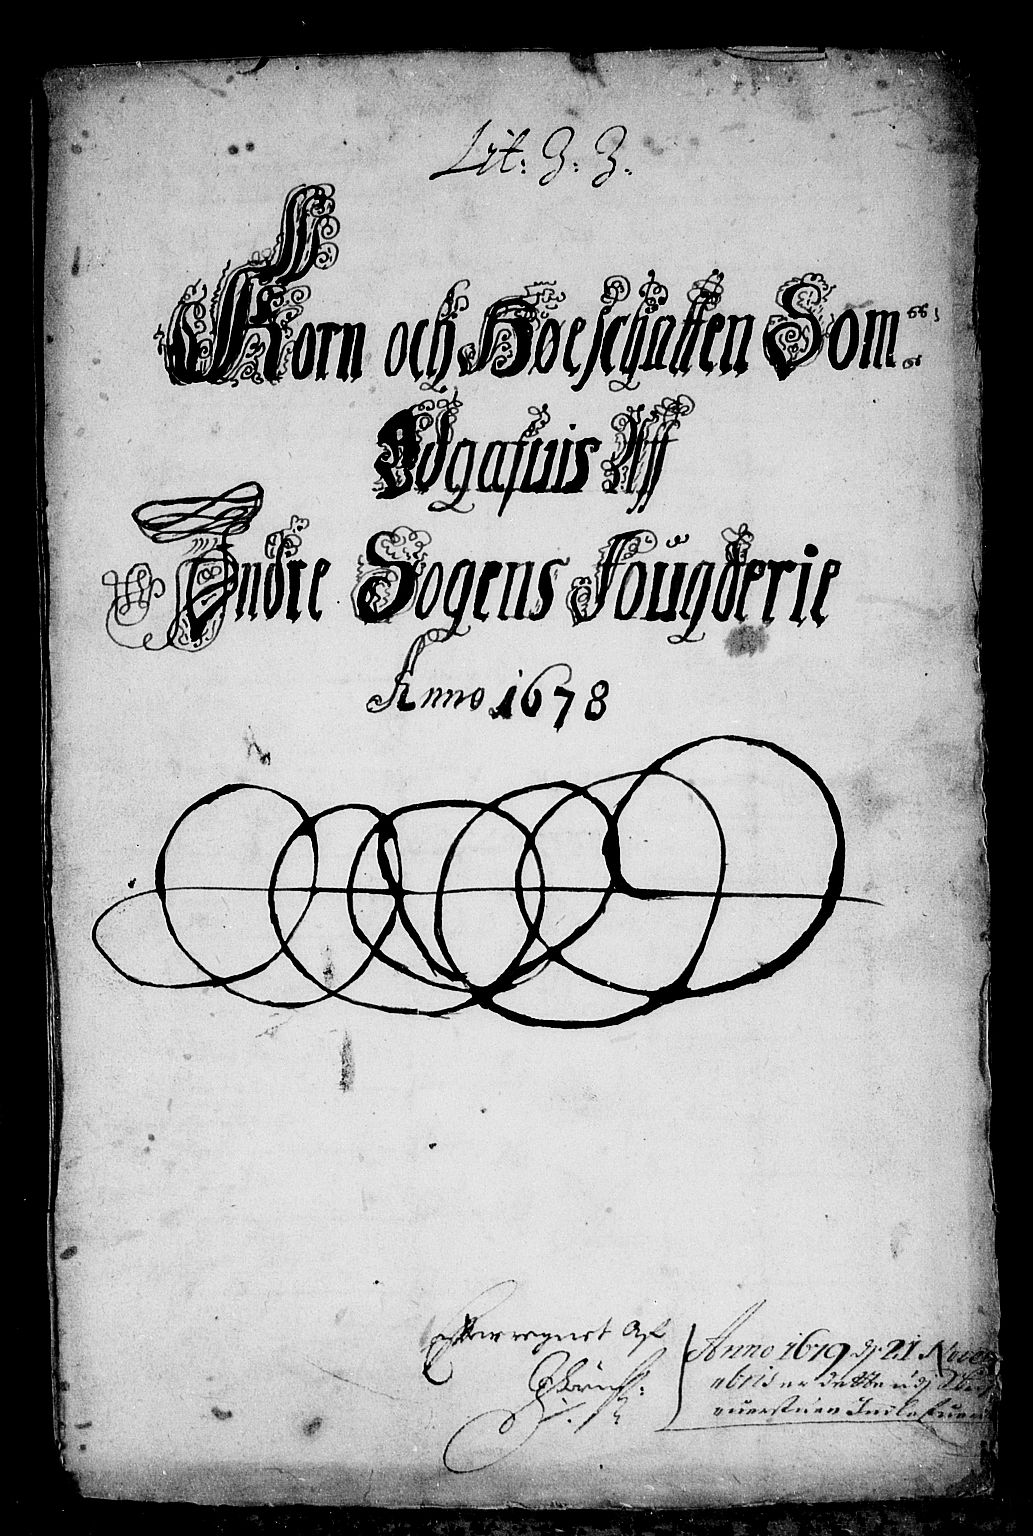 Lit: Z: Z:
Korn och Høeschatten Som
Udgafuis Aff
Indre Sogens Fougderie
Anno 1678
Efterregnet Af
Anno 1679 dj. 21 Nove